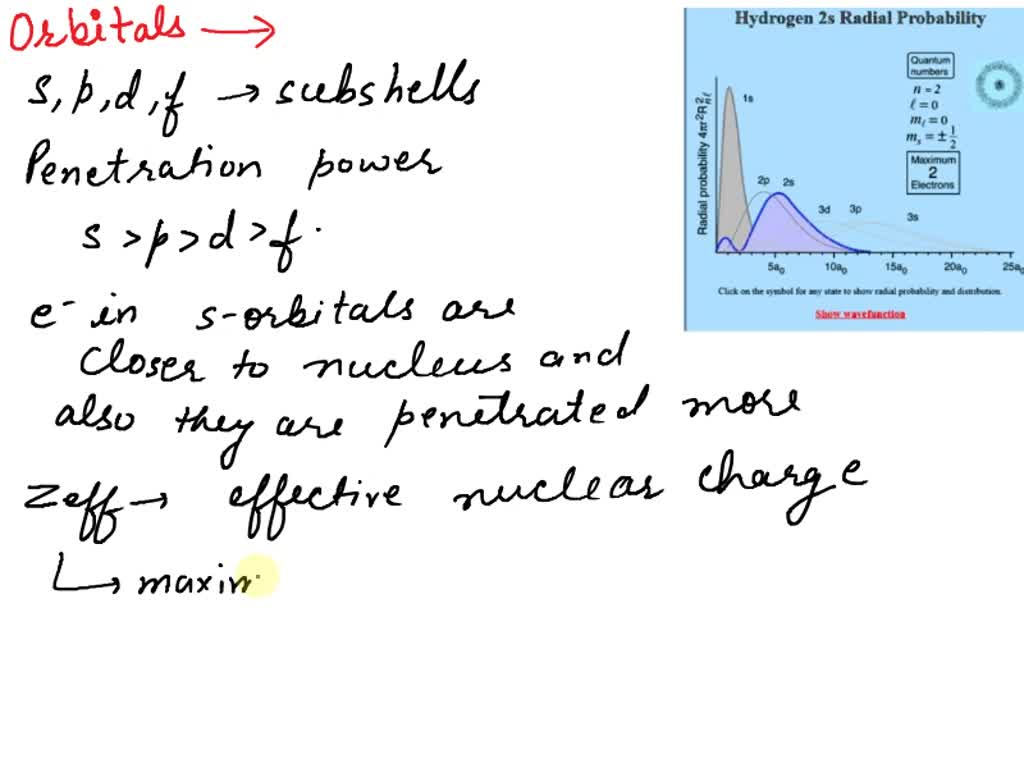 Orbitals →
s, p, d, f → subshells
Penetration power
s > p > d > f.
e⁻ in s-orbitals are
closer to nucleus and
also they are penetrated more
Zeff → effective nuclear charge
↳ maxim
Hydrogen 2s Radial Probability
Quantum
numbers
n = 2
ℓ = 0
mℓ = 0
ms = ± 1/2
Maximum
2
Electrons
Radial probability 4πr²R²nℓ
1s
2p 2s
3d 3p 3s
5a₀ 10a₀ 15a₀ 20a₀ 25a₀
Click on the symbol for any state to show radial probability and distribution.
Show wavefunction